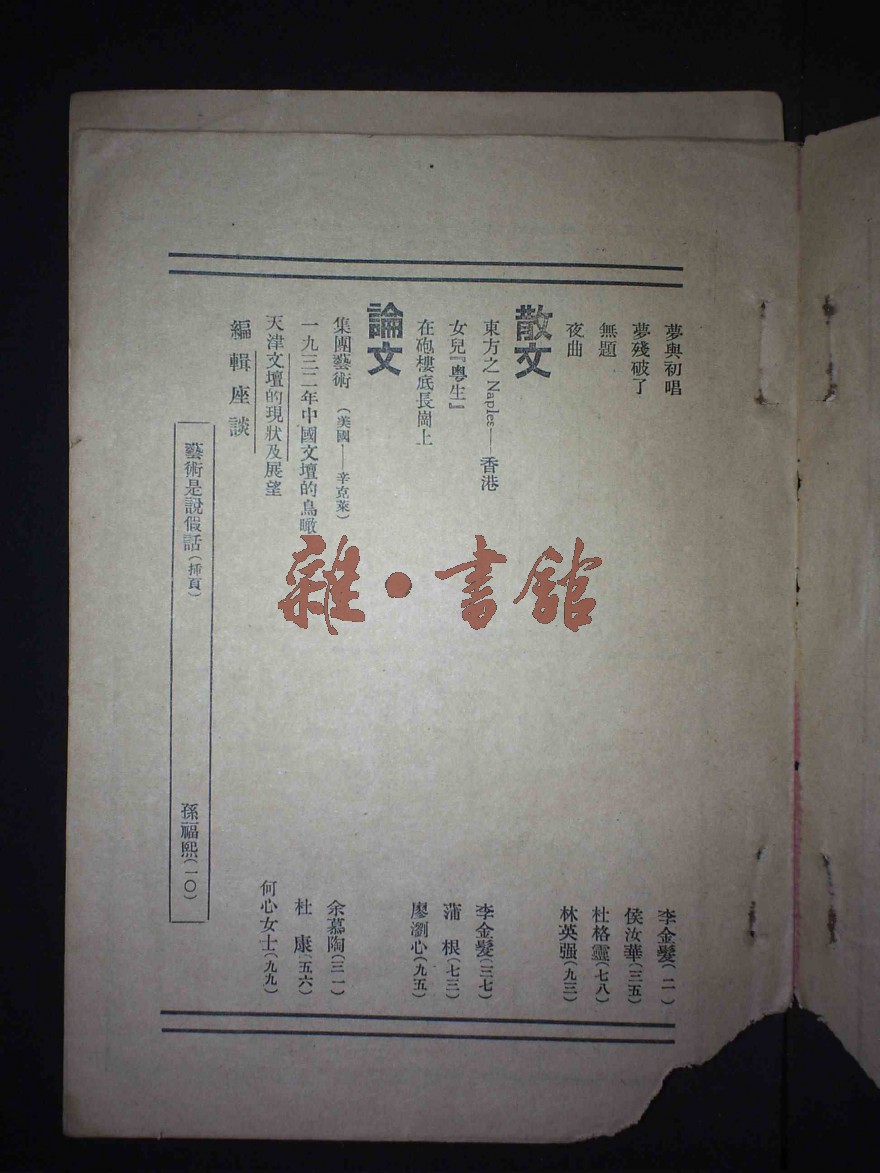 夢與初唱 李金髮(二一)
夢殘破了 侯汝華(三五)
無題 杜格靈(七八)
夜曲 林英强(九三)
散文
東方之Naples—香港 李金髮(三七)
女兒『粵生』 蒲根(七三)
在砲樓底長崗上 廖瀏心(九五)
論文
集團藝術(美國——辛克萊) 余慕陶(三一)
一九三二年中國文壇的鳥瞰 杜康(五六)
天津文壇的現狀及展望 何心女士(九九)
編輯座談
藝術是說假話(揷頁) 孫福熙(一〇)
雜·書館